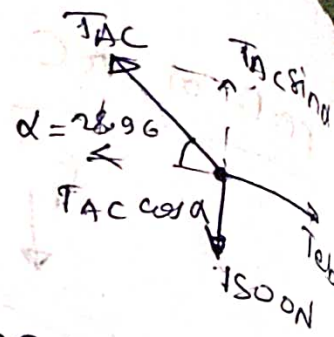 TAC
TAC sinα
α = 28.96
TAC cosα
1500N